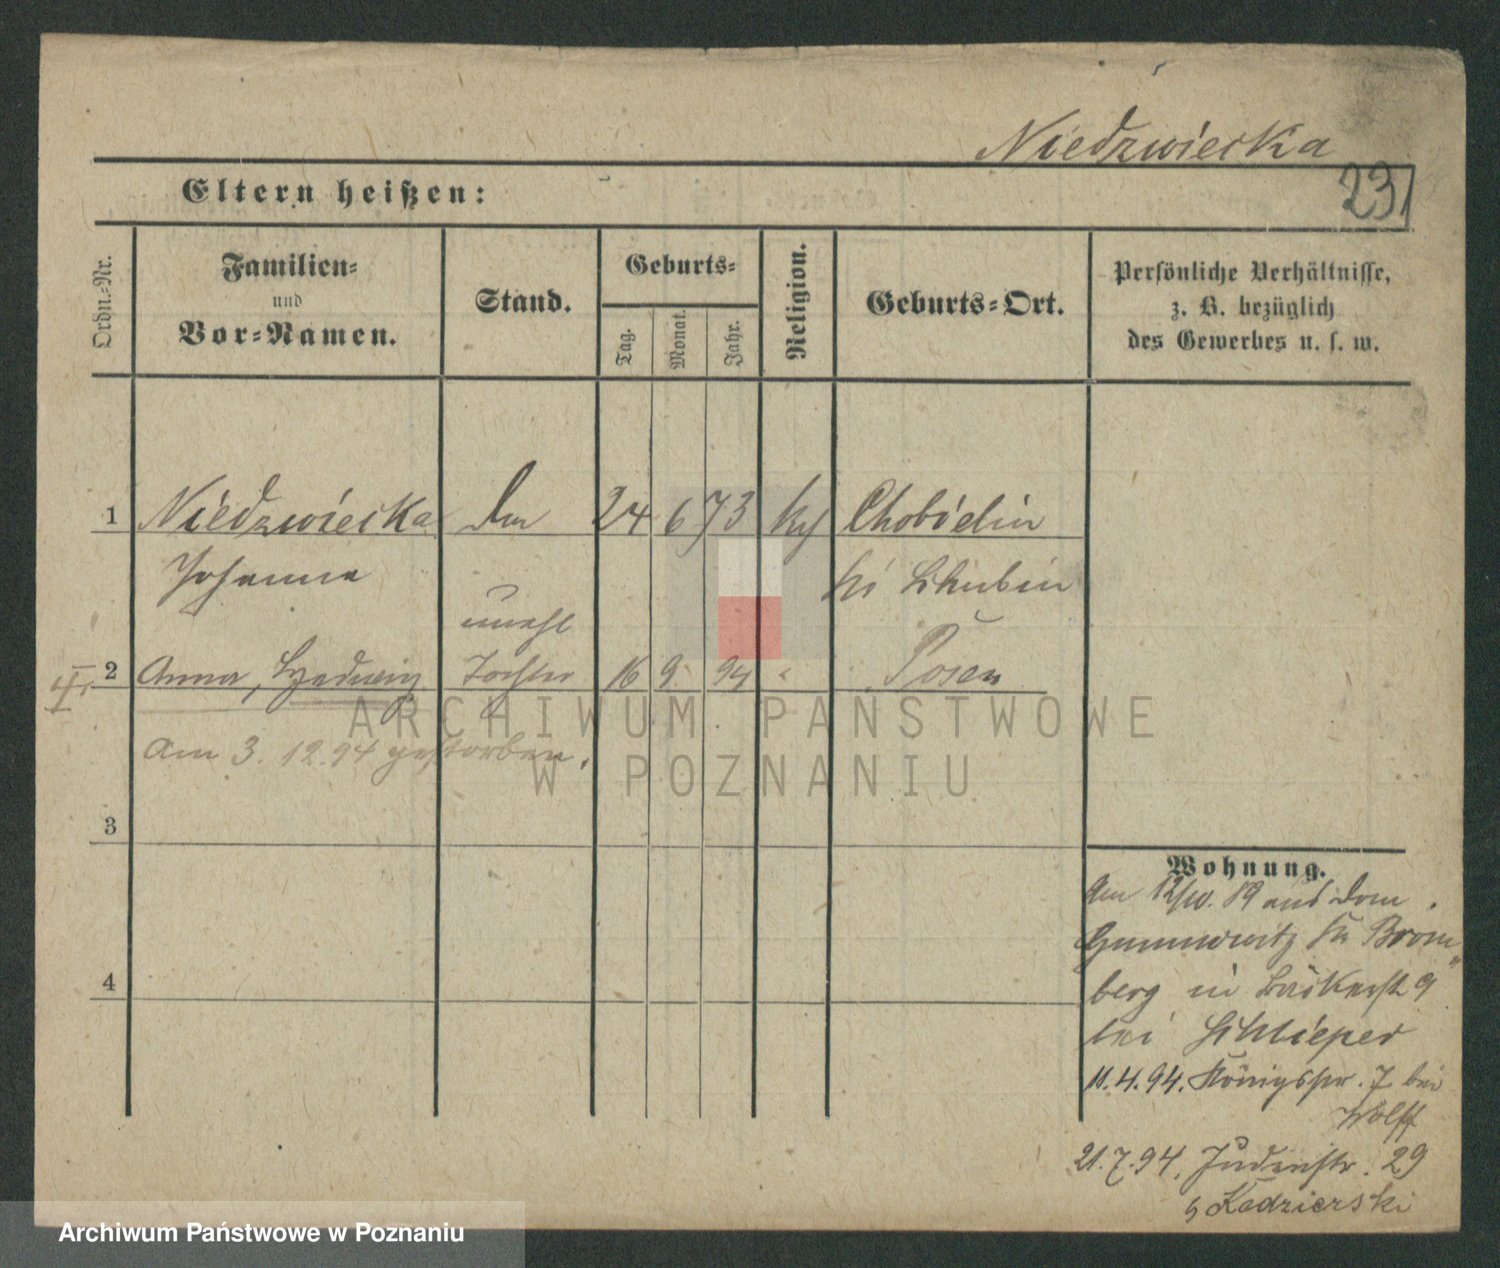 Niedzwiecka
23
Eltern heißen:
Ordn.-Nr.
Familien-
und
Vor-Namen.
Stand.
Geburts-
Tag.
Monat.
Jahr.
Religion.
Geburts-Ort.
Persönliche Verhältnisse,
z. B. bezüglich
des Gewerbes u. s. w.
1 Niedzwiecka 24 6 73 Chobielin
Johanna Schubin
unehl
2 Anna, Hedwig Tochter 16 9 94 Posen
am 3. 12. 94 gestorben.
3
4
Wohnung.
Am 12/10. 89 aus Dom
Brom
berg in Bäckerst 9
bei Schlieper
11.4.94. Königspl. 7 bei
Wolff
21.7.94. Judenstr. 29
Kedzierski
ARCHIWUM PAŃSTWOWE
W POZNANIU
Archiwum Państwowe w Poznaniu